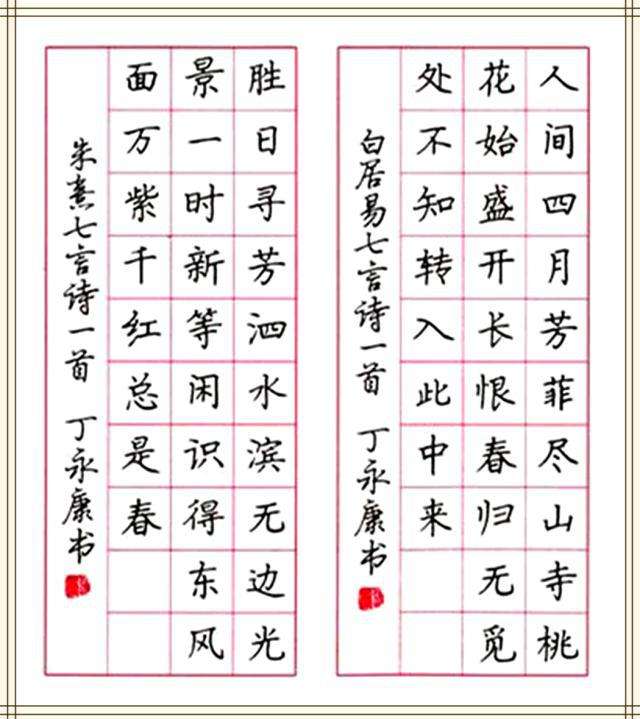 人间四月芳菲尽山寺桃
花始盛开长恨春归无觅
处不知转入此中来
白居易七言诗一首 丁永康书
胜日寻芳泗水滨无边光
景一时新等闲识得东风
面万紫千红总是春
朱熹七言诗一首 丁永康书